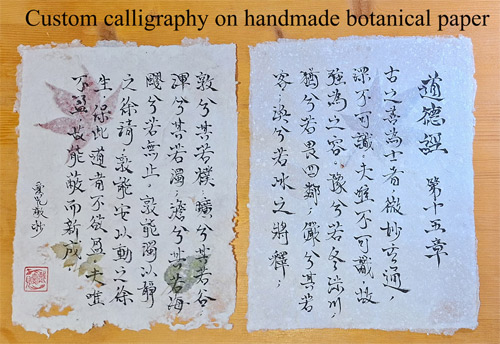 Custom calligraphy on handmade botanical paper
道德經 第十五章
古之善為士者微妙玄通,
深不可識夫唯不可識故
強為之容,豫兮若冬涉川,
猶兮若畏四鄰,儼兮其若
客,渙兮若冰之將釋,
敦兮其若樸,曠兮其若谷,
渾兮其若濁,澹兮其若海
飂兮若無止,孰能濁以靜
之徐清,孰能安以動之徐
生,保此道者不欲盈,夫唯
不盈,故能蔽而新成,